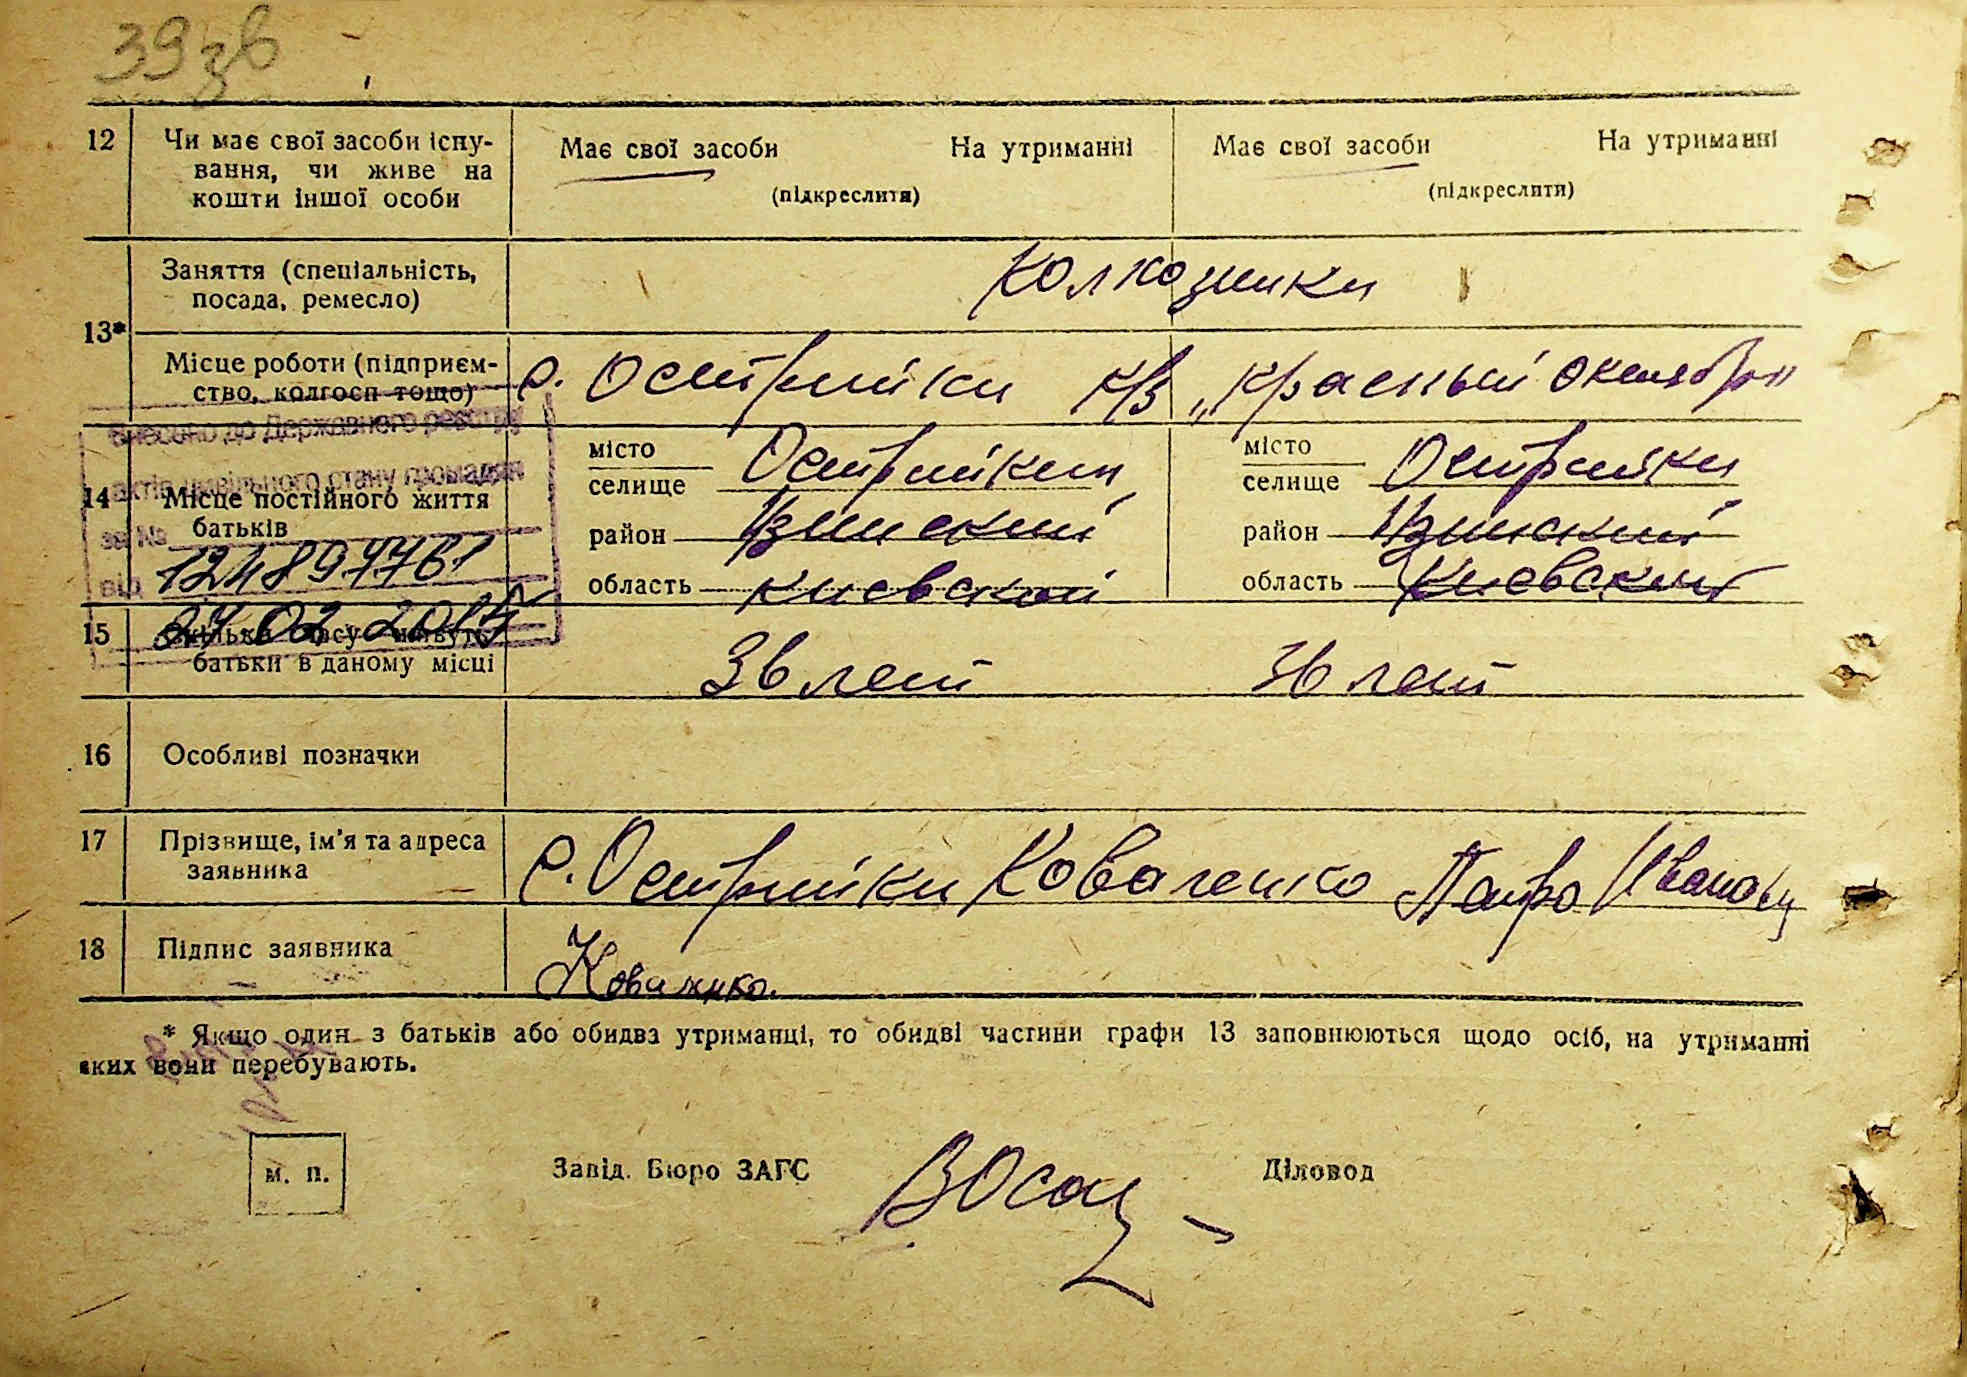 39 зв
12 Чи має свої засоби існу- Має свої засоби На утриманні Має свої засоби На утриманні
вання, чи живе на
кошти іншої особи (підкреслити) (підкреслити)
13* Заняття (спеціальність, Колхозники
посада, ремесло)
Місце роботи (підприєм- с. Острийки к/з „Красный Октябрь"
ство, колгосп тощо)
Внесено до Державного реєстру
актів цивільного стану громадян
за № 124897761
від 27.02.2017
14 Місце постійного життя
батьків
місто Острийки місто Острийки
селище селище
район Узинский район Узинский
область Киевской область Киевский
15 Скільки часу живуть 36 лет 36 лет
батьки в даному місці
16 Особливі позначки
17 Прізвище, ім'я та адреса с. Острийки Коваленко Петро Иванович
заявника
18 Підпис заявника Коваленко.
* Якщо один з батьків або обидва утриманці, то обидві частини графи 13 заповнюються щодо осіб, на утриманні
яких вони перебувають.
м. п. Завід. Бюро ЗАГС Діловод